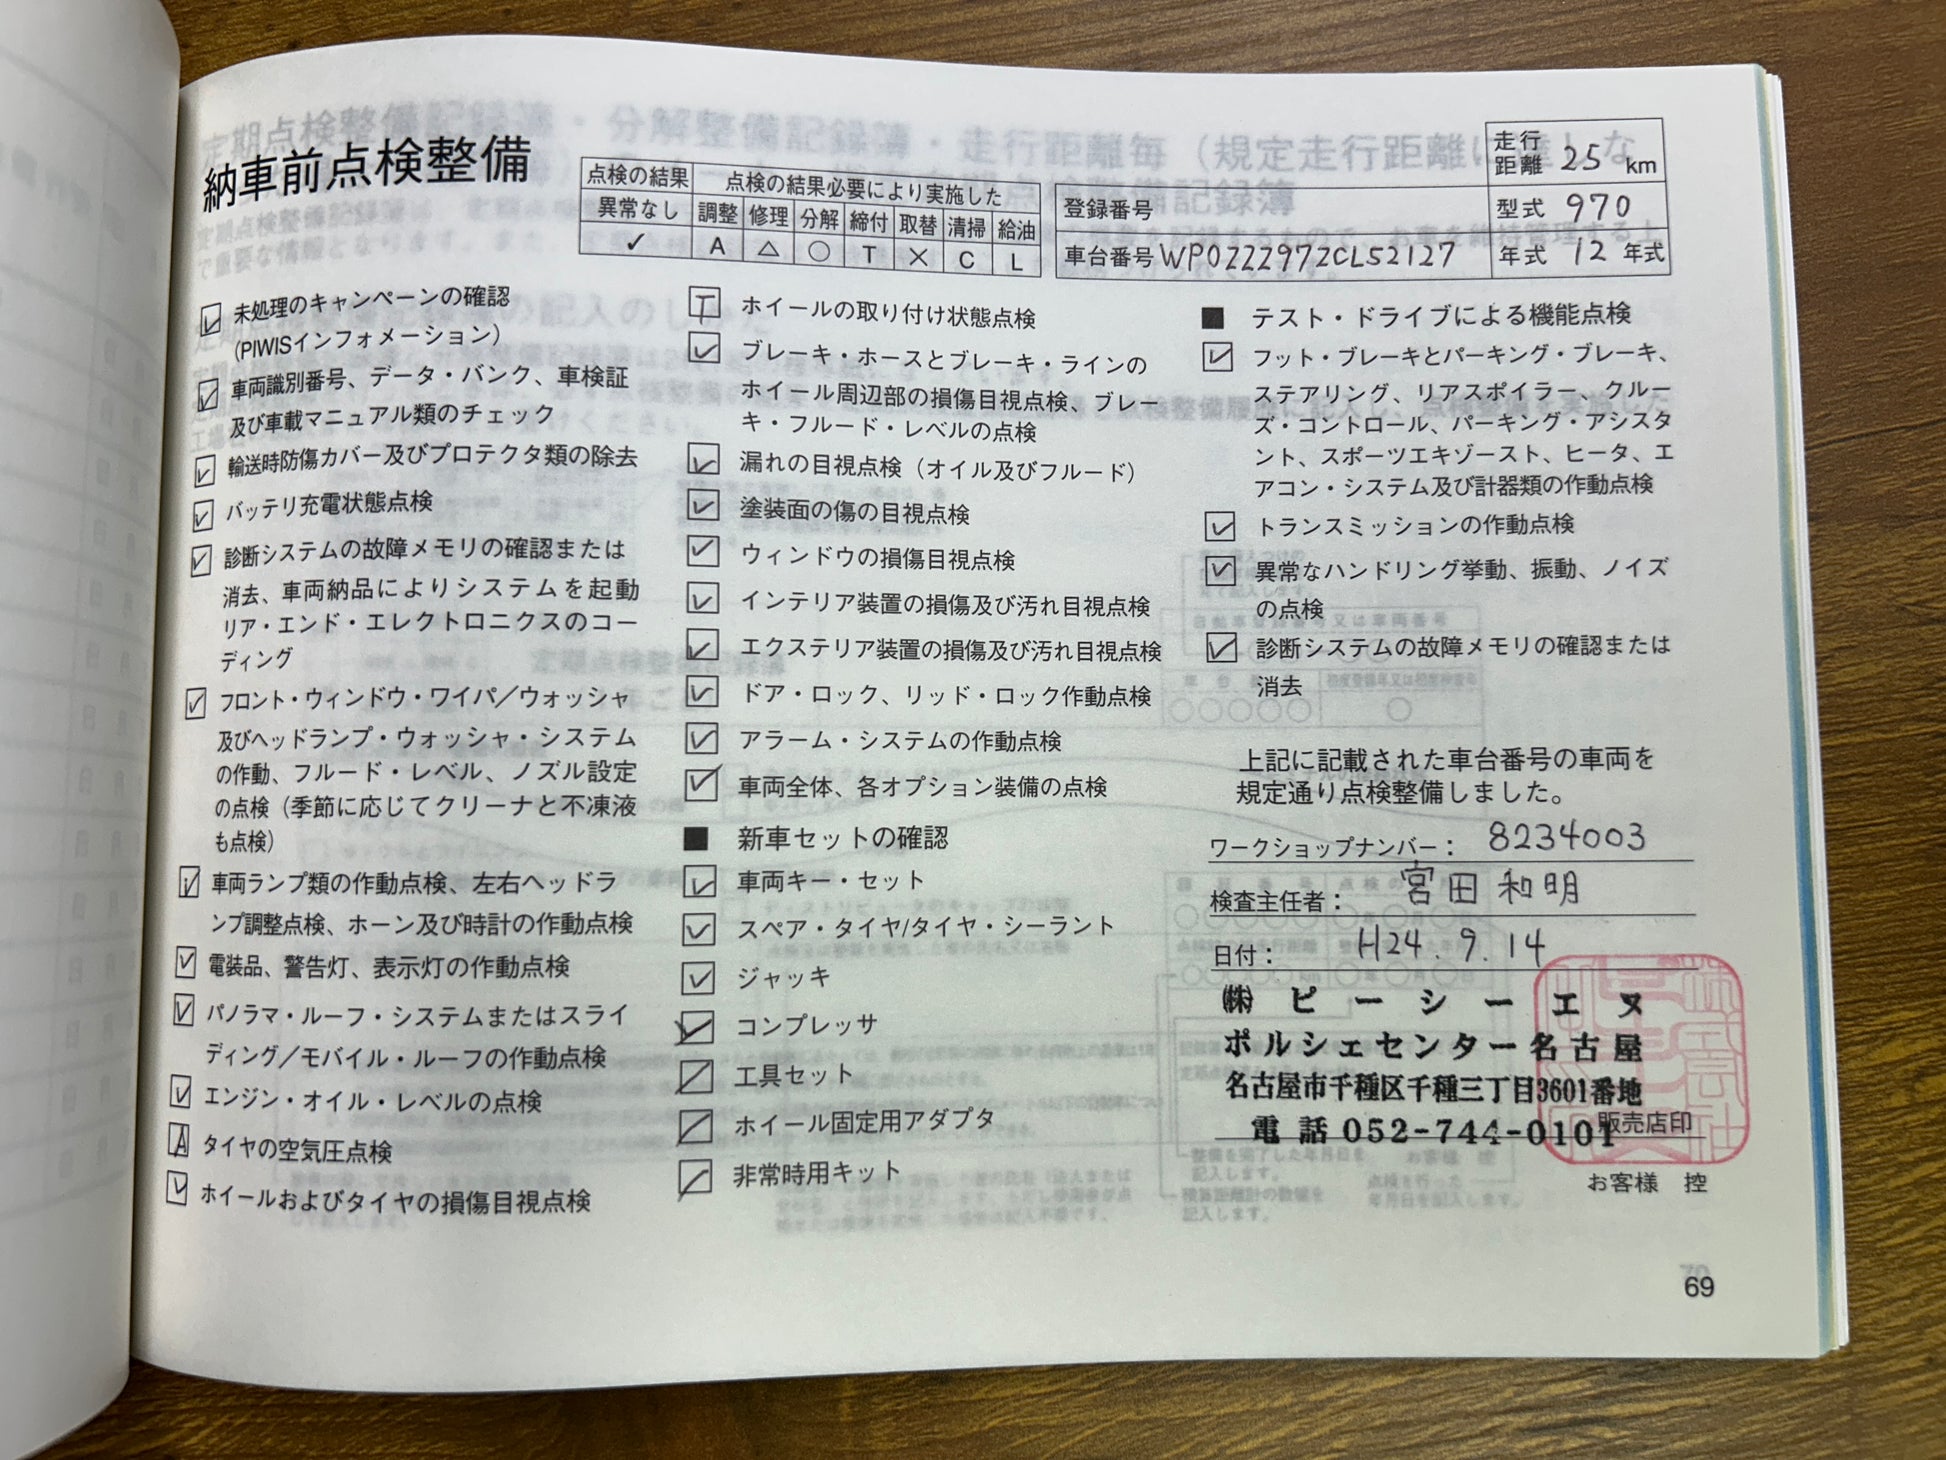 納車前点検整備
点検の結果 点検の結果必要により実施した
異常なし 調整 修理 分解 締付 取替 清掃 給油
✓ A △ ○ T × C L
走行距離 25 km
登録番号 型式 970
車台番号 WP0ZZZ97ZCL52127 年式 12 年式
未処理のキャンペーンの確認
(PIWISインフォメーション)
車両識別番号、データ・バンク、車検証
及び車載マニュアル類のチェック
輸送時防傷カバー及びプロテクタ類の除去
バッテリ充電状態点検
診断システムの故障メモリの確認または
消去、車両納品によりシステムを起動
リア・エンド・エレクトロニクスのコー
ディング
フロント・ウィンドウ・ワイパ／ウォッシャ
及びヘッドランプ・ウォッシャ・システム
の作動、フルード・レベル、ノズル設定
の点検（季節に応じてクリーナと不凍液
も点検）
車両ランプ類の作動点検、左右ヘッドラ
ンプ調整点検、ホーン及び時計の作動点検
電装品、警告灯、表示灯の作動点検
パノラマ・ルーフ・システムまたはスライ
ディング／モバイル・ルーフの作動点検
エンジン・オイル・レベルの点検
A タイヤの空気圧点検
ホイールおよびタイヤの損傷目視点検
T ホイールの取り付け状態点検
ブレーキ・ホースとブレーキ・ラインの
ホイール周辺部の損傷目視点検、ブレー
キ・フルード・レベルの点検
漏れの目視点検（オイル及びフルード）
塗装面の傷の目視点検
ウィンドウの損傷目視点検
インテリア装置の損傷及び汚れ目視点検
エクステリア装置の損傷及び汚れ目視点検
ドア・ロック、リッド・ロック作動点検
アラーム・システムの作動点検
車両全体、各オプション装備の点検
■ 新車セットの確認
車両キー・セット
スペア・タイヤ/タイヤ・シーラント
ジャッキ
コンプレッサ
工具セット
ホイール固定用アダプタ
非常時用キット
■ テスト・ドライブによる機能点検
フット・ブレーキとパーキング・ブレーキ、
ステアリング、リアスポイラー、クルー
ズ・コントロール、パーキング・アシスタ
ント、スポーツエキゾースト、ヒータ、エ
アコン・システム及び計器類の作動点検
トランスミッションの作動点検
異常なハンドリング挙動、振動、ノイズ
の点検
診断システムの故障メモリの確認または
消去
上記に記載された車台番号の車両を
規定通り点検整備しました。
ワークショップナンバー： 8234003
検査主任者： 宮田和明
日付： H24.9.14
㈱ピーシーエヌ
ポルシェセンター名古屋
名古屋市千種区千種三丁目3601番地
電話 052-744-0101
販売店印
お客様 控
69